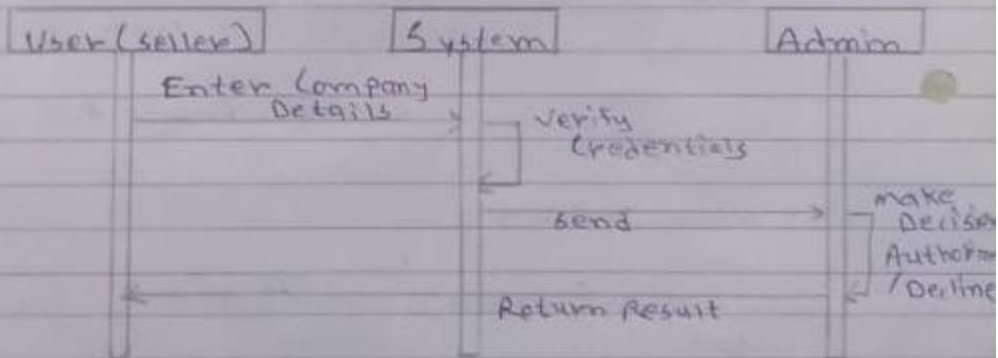 User (seller)
System
Admin
Enter Company
Details
Verify
Credentials
send
make
Decision
Authorize
/Decline
Return Result